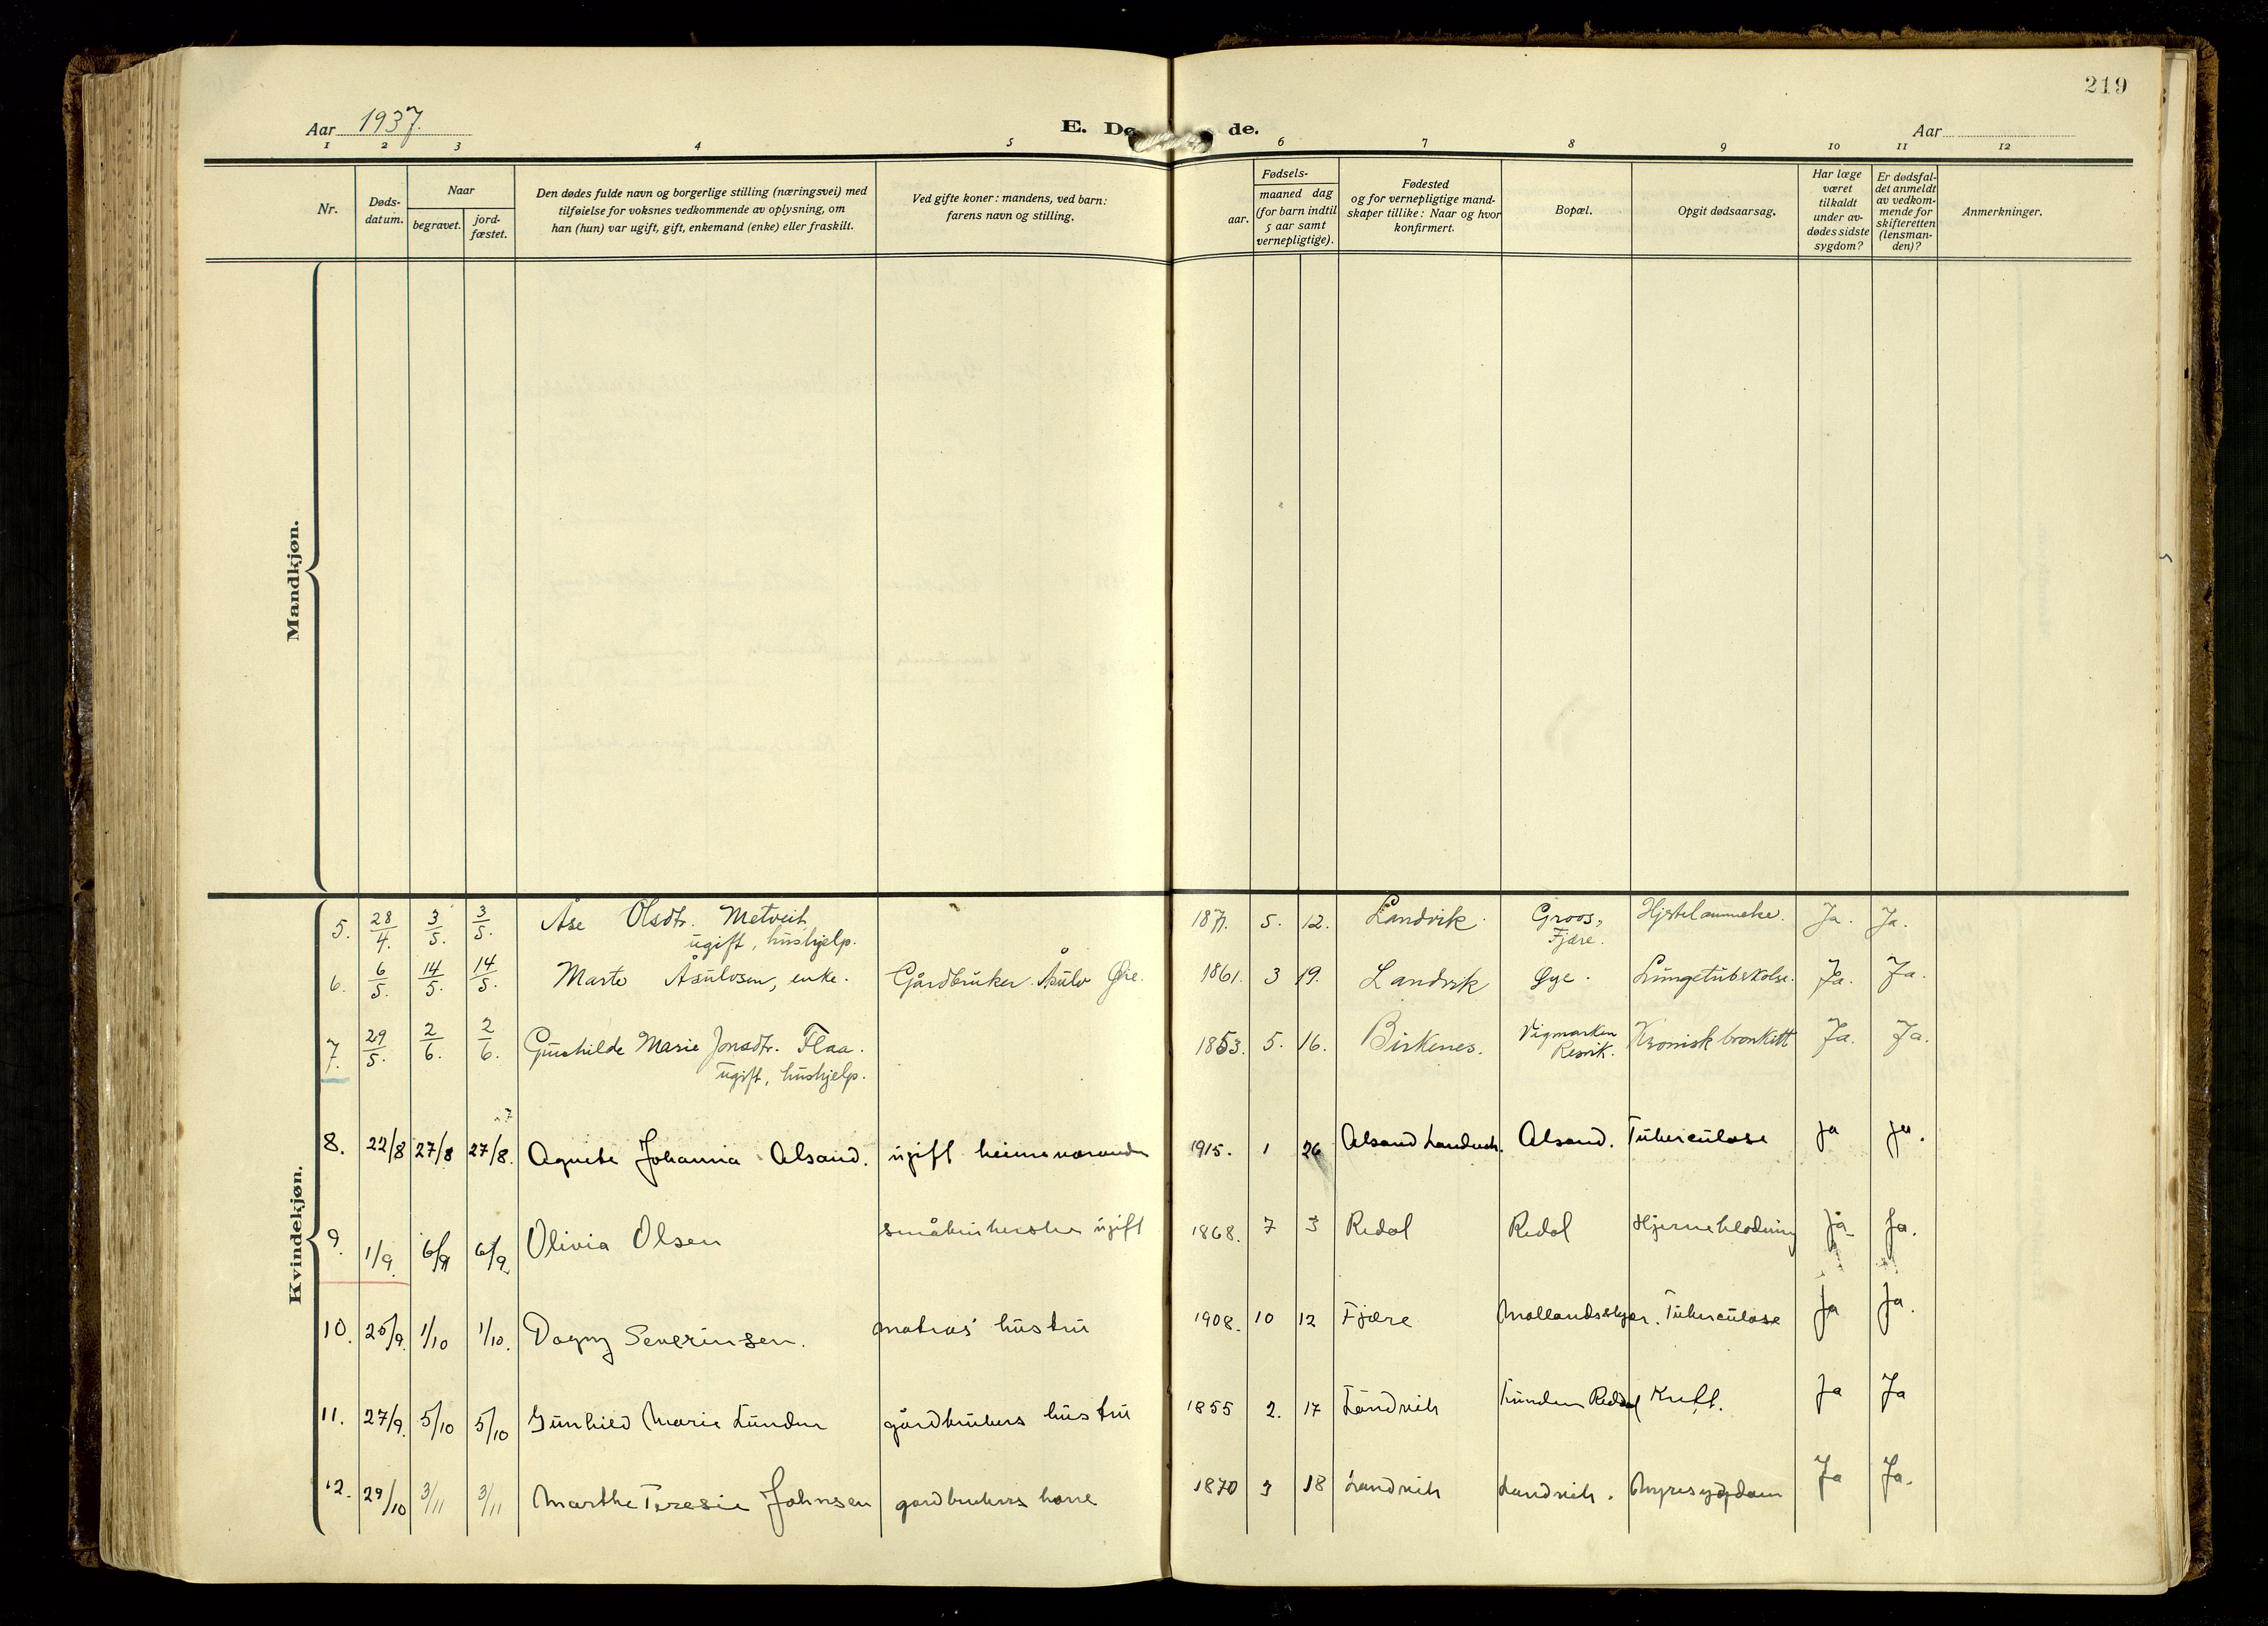 219
Aar 1937.
E. Dø de.
Aar
1 2 3 4 5 6 7 8 9 10 11 12
Nr.
Døds-
datum.
Naar
begravet.
jord-
fæstet.
Den dødes fulde navn og borgerlige stilling (næringsvei) med
tilføielse for voksnes vedkommende av oplysning, om
han (hun) var ugift, gift, enkemand (enke) eller fraskilt.
Ved gifte koner: mandens, ved barn:
farens navn og stilling.
Fødsels-
aar.
maaned dag
(for barn indtil
5 aar samt
vernepligtige).
Fødested
og for vernepligtige mand-
skaper tillike: Naar og hvor
konfirmert.
Bopæl.
Opgit dødsaarsag.
Har læge
været
tilkaldt
under av-
dødes sidste
sygdom?
Er dødsfal-
det anmeldt
av vedkom-
mende for
skifteretten
(lensman-
den)?
Anmerkninger.
Mandkjøn.
Kvindekjøn.
5. 28/4. 3/5. 3/5. Åse Olsdtr. Metveit 1871. 5. 12. Landvik. Groos, Hjertelammelse. Ja. Ja.
ugift, hushjelp. Fjære.
6. 6/5. 14/5. 14/5. Marte Åsulvsen, enke. Gårdbruker Åsulv Øie. 1861. 3 19. Landvik Øye. Lungetuberkolse. Ja. Ja.
7. 29/5. 2/6. 2/6. Gunhilde Marie Jonsdtr. Flaa. 1853. 5. 16. Birkenes. Vigmarken Kronisk bronkitt Ja. Ja.
ugift, hushjelp. Resvik.
8. 22/8 27/8 27/8. Agnete Johanna Alsand. ugift heimeværande 1915. 1 26 Alsand Landvik. Alsand. Tuberculose ja ja.
9. 1/9. 6/9 6/9 Olivia Olsen småbrukerske ugift 1868. 7 3 Redal Redal Hjerneblødning ja ja.
10. 25/9. 1/10 1/10. Dagny Severinsen. matros' hustru 1908. 10 12 Fjære Mollandsskjær. Tuberculose ja ja.
11. 27/9. 5/10 5/10 Gunhild Marie Lunden gårdbrukers hustru 1855 2. 17 Landvik Lunden Reddal Kreft. ja Ja
12. 29/10 3/11 3/11 Marthe Teresie Johnsen gardbrukers kone 1870 3 18 Landvik Landvik. Nyresygdom Ja Ja.